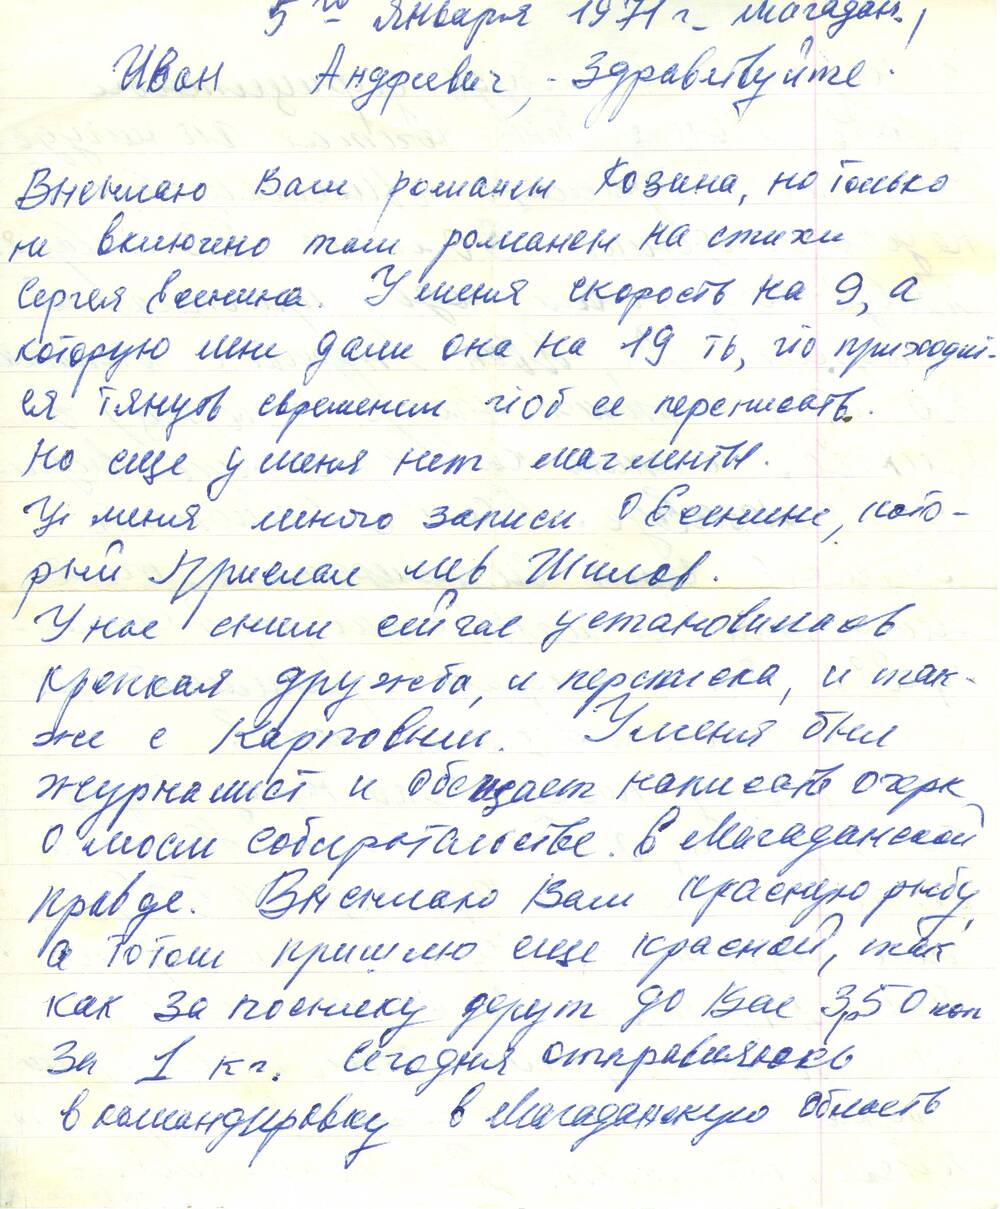 5го Января 1971 г. Магадан,
Иван Андреевич, - Здравствуйте.
Высылаю Вам романсы Козина, но только
не включено там романсы на стихи
Сергея Есенина. У меня скорость на 9, а
которую мне дали она на 19 ть, что приходит-
ся тянуть временем чтоб ее переписать.
Но еще у меня нет магленты.
У меня много записи о Есенине, кото-
рый прислал Лев Шилов.
У нас сним сейчас установилась
крепкая дружба, и переписка, и так-
же с Карповым. У меня был
журналист и обещает написать очерк
о моем собирательстве. в Магаданской
правде. Высылаю Вам красную рыбу,
а потом пришлю еще красной, так
как за посылку дерут до Вас 3р50коп
за 1 кг. Сегодня отправляюсь
в командировку в Магаданскую область